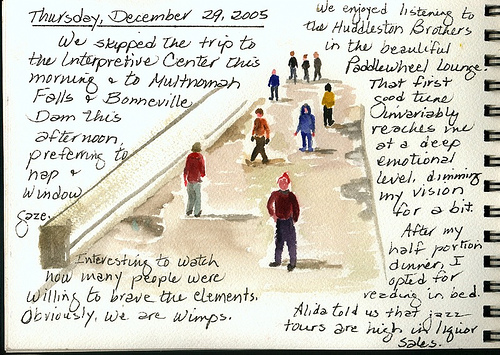 Thursday, December 29, 2005
We skipped the trip to
the Interpretive Center this
morning & to Multnomah
Falls & Bonneville
Dam this
afternoon,
preferring to
nap &
window
gaze.
Interesting to watch
how many people were
willing to brave the elements.
Obviously, we are wimps.
We enjoyed listening to
the Huddleston Brothers
in the beautiful
Paddlewheel Lounge.
That first
good tune
invariably
reaches me
at a deep
emotional
level, dimming
my vision
for a bit.
After my
half portion
dinner, I
opted for
reading in bed.
Alida told us that jazz
tours are high in liquor
sales.